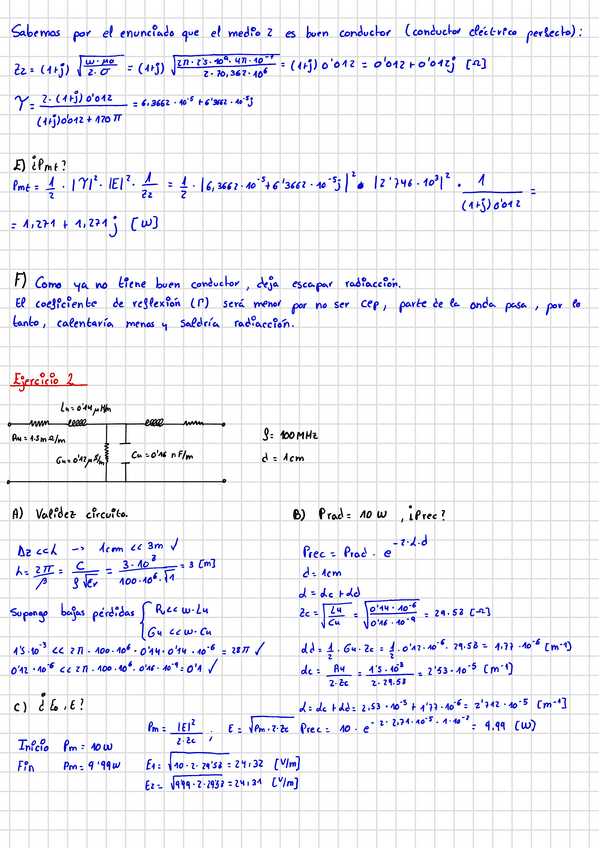 Sabemos por el enunciado que el medio 2 es buen conductor (conductor eléctrico perfecto):
Z2 = (1+j) √(ω·μ0 / 2·σ) = (1+j) √(2π·2'5·10⁹·4π·10⁻⁷ / 2·70,362·10⁶) = (1+j) 0'012 = 0'012 + 0'012j [Ω]
γ = 2·(1+j) 0'012 / (1+j)0'012 + 120π = 6,3662·10⁻⁵ + 6'3662·10⁻⁵j
E) ¿Pmt?
Pmt = 1/2 · |γ|² · |E|² · 1/Z2 = 1/2 · |6,3662·10⁻⁵ + 6'3662·10⁻⁵j|² · |2'746·10³|² · 1/(1+j)0'012 =
= 1,271 + 1,271j [W]
F) Como ya no tiene buen conductor, deja escapar radiacción.
El coeficiente de reflexión (Γ) será menor por no ser CEP, parte de la onda pasa, por lo
tanto, calentaría menos y saldría radiacción.
Ejercicio 2
Lu = 0'14 μH/m
Ru = 1.5 mΩ/m
Gu = 0'12 μS/m
Cu = 0'16 nF/m
f = 100 MHz
d = 1cm
A) Validez circuito.
Δz <<λ -> 1cm << 3m ✓
λ = 2π/β = C / f√εr = 3·10⁸ / 100·10⁶·√1 = 3 [m]
Supongo bajas pérdidas { Ru << ω·Lu
Gu << ω·Cu
1'5·10⁻³ << 2π·100·10⁶·0'14·0'14·10⁻⁶ = 28π ✓
0'12·10⁻⁶ << 2π·100·10⁶·0'16·10⁻⁹ = 0'1 ✓
B) Prad = 10 W, ¿Prec?
Prec = Prad · e^(-2·α·d)
d = 1cm
α = αc + αd
Zc = √(Lu/Cu) = √(0'14·10⁻⁶ / 0'16·10⁻⁹) = 29.58 [Ω]
αd = 1/2 · Gu · Zc = 1/2 · 0'12·10⁻⁶ · 29.58 = 1.77·10⁻⁶ [m⁻¹]
αc = Ru / 2·Zc = 1'5·10³ / 2·29.58 = 2'53·10⁻⁵ [m⁻¹]
α = αc + αd = 2.53·10⁻⁵ + 1'77·10⁻⁶ = 2'712·10⁻⁵ [m⁻¹]
Prec = 10 · e^(-2·2.71·10⁻⁵·1·10⁻²) = 9.99 (W)
C) ¿E0, E?
Pm = |E|² / 2·Zc ; E = √(Pm·2·Zc)
Inicio Pm = 10W E1 = √(10·2·29'58) = 24,32 [V/m]
Fin Pm = 9'99W E2 = √(9'99·2·29'58) = 24,31 [V/m]